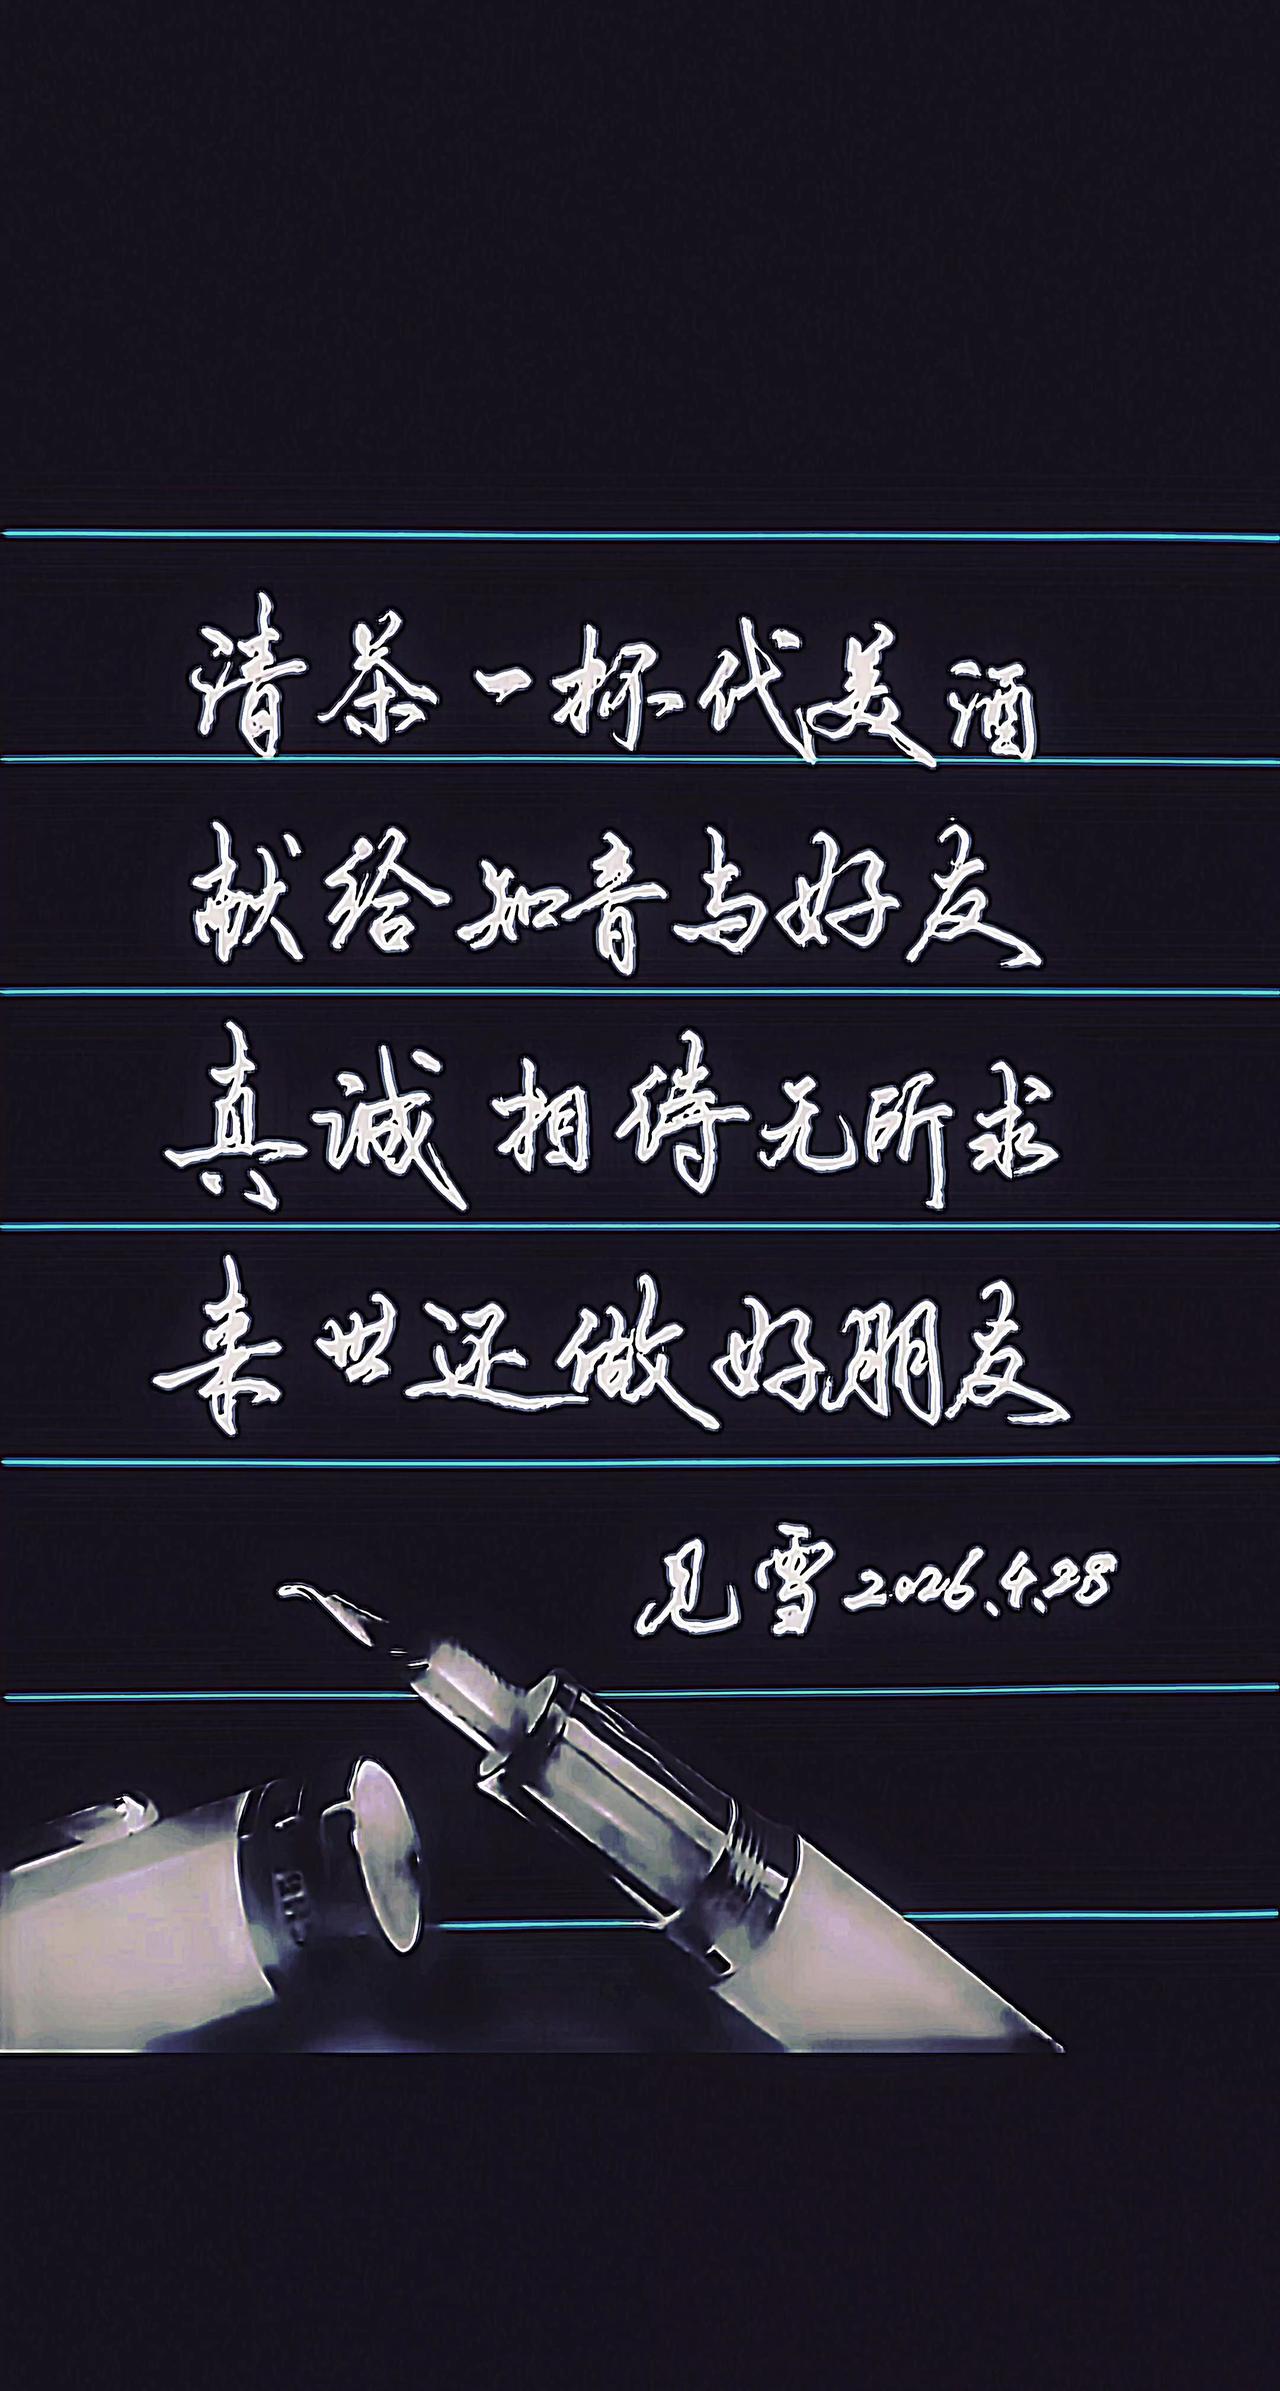 清茶一杯代美酒
献给知音与好友
真诚相待无所求
来世还做好朋友
见雪2026.4.28